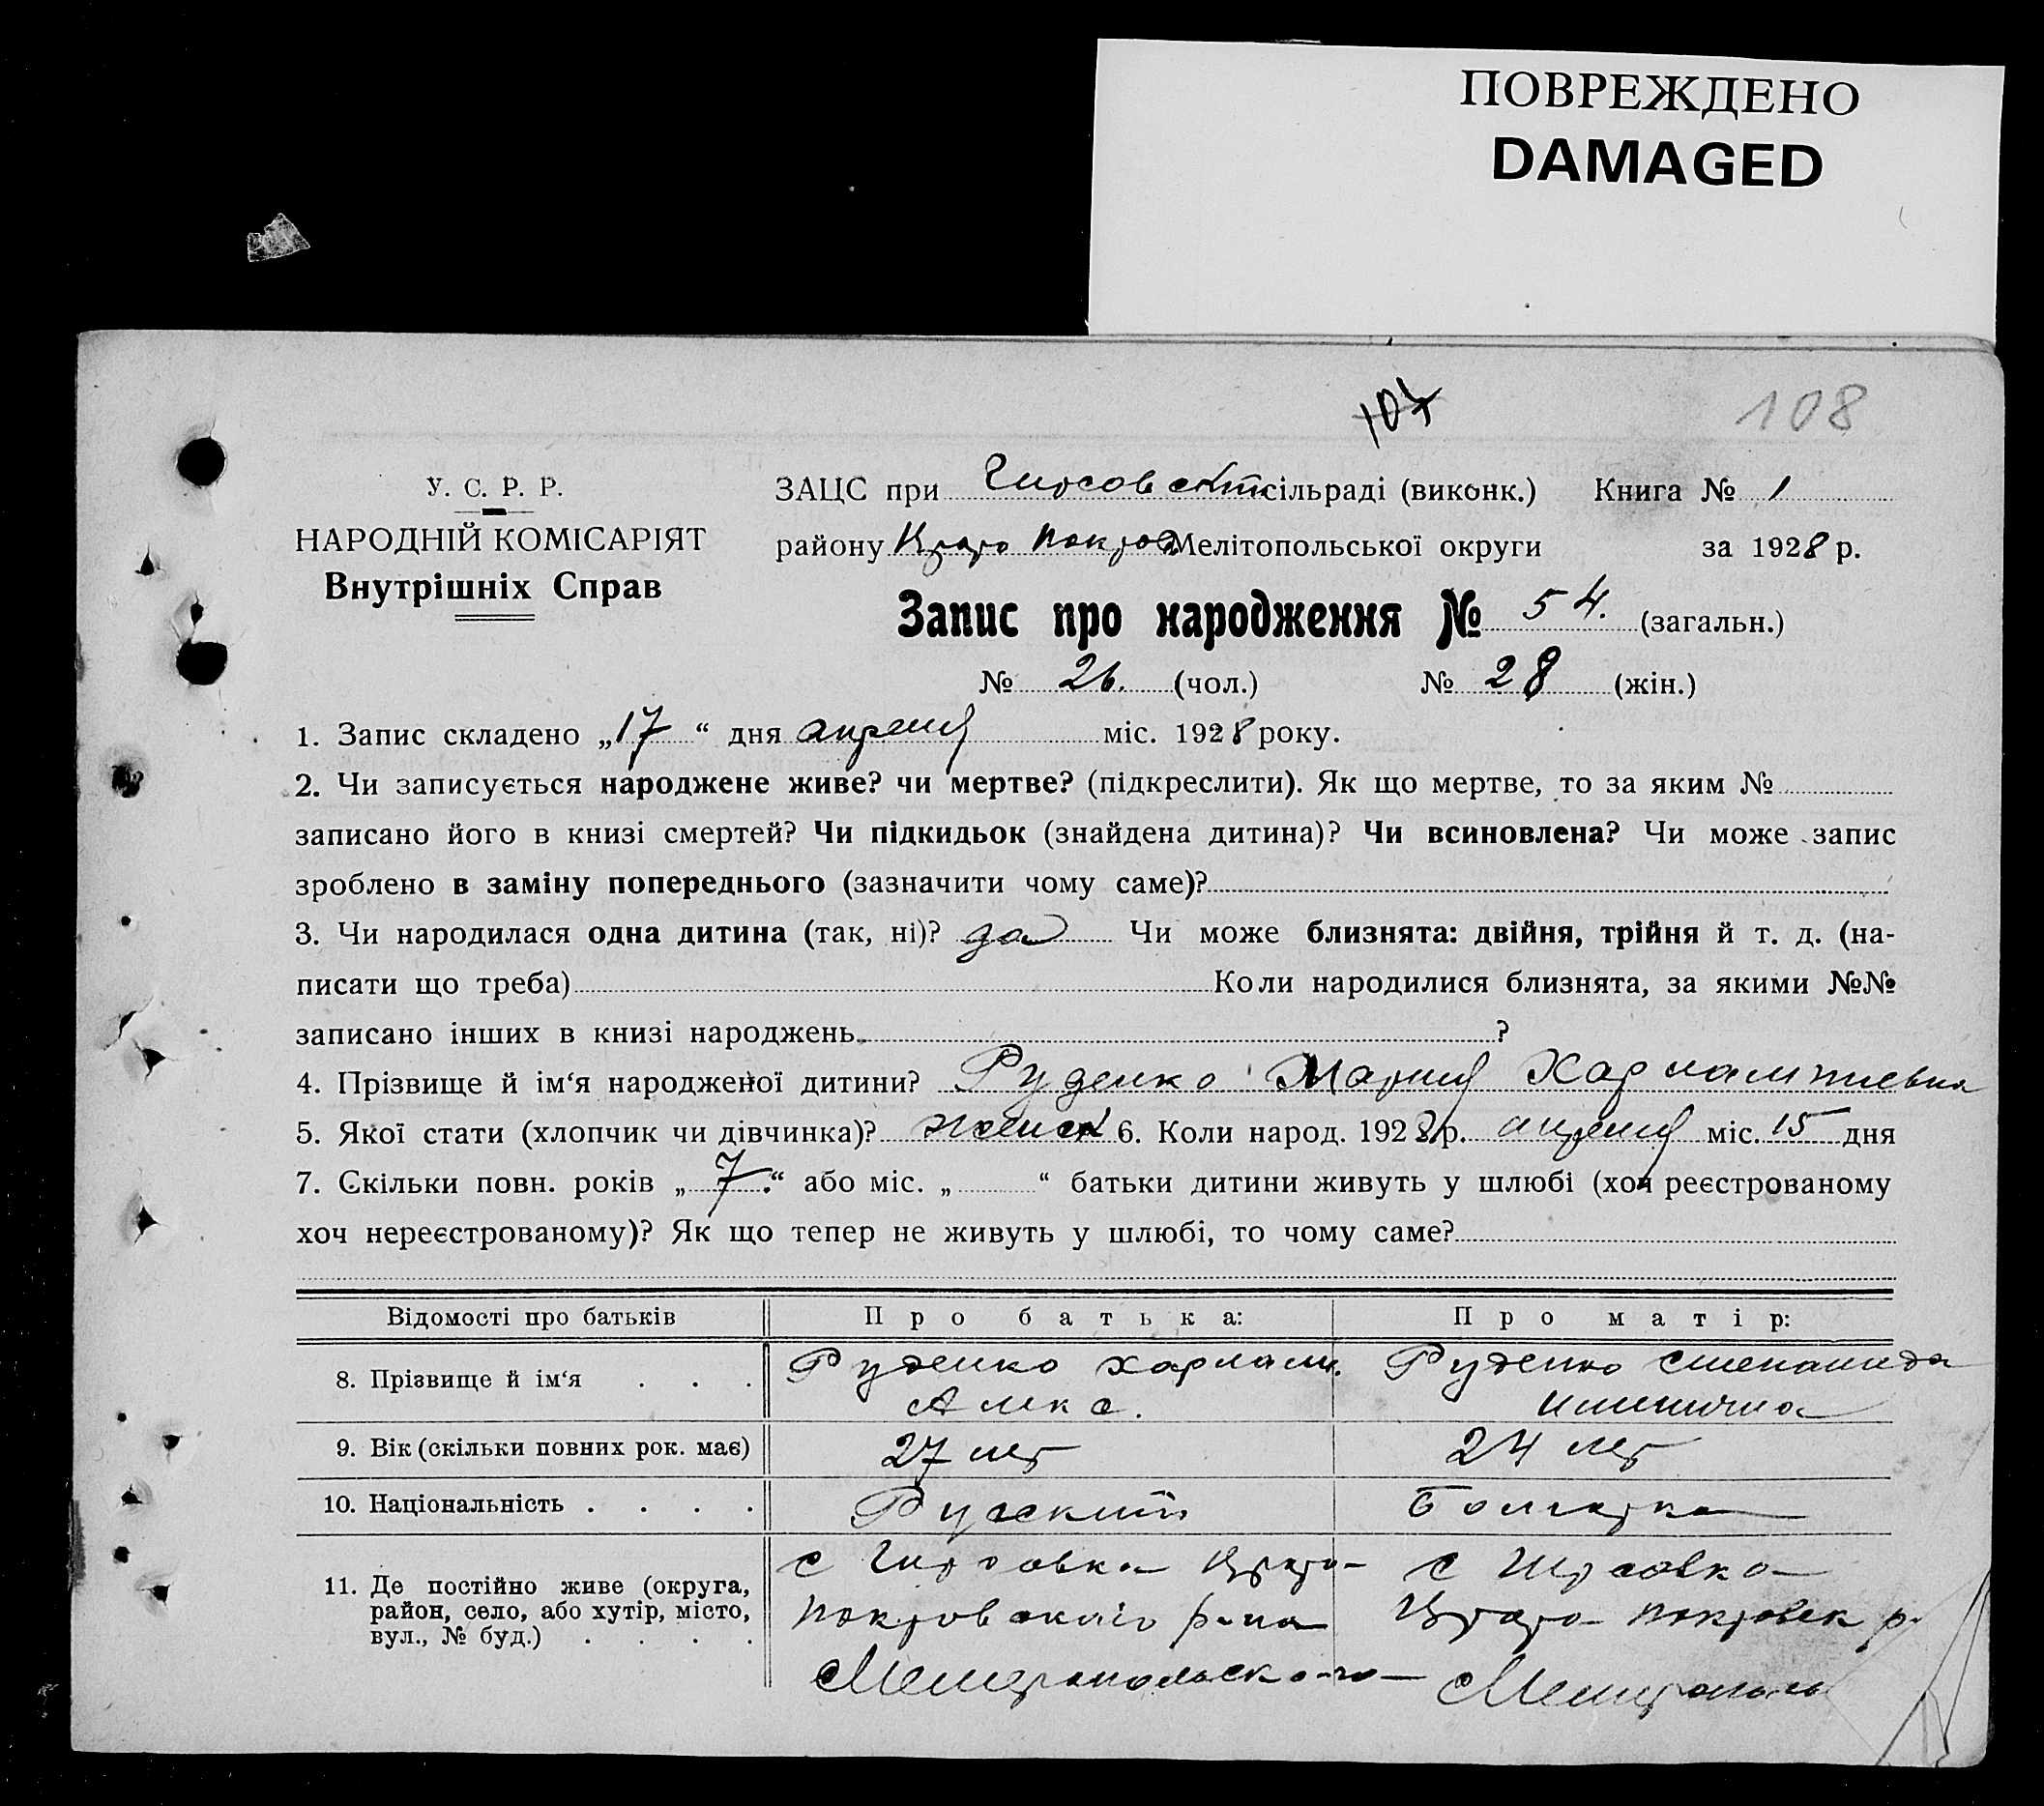 ПОВРЕЖДЕНО
DAMAGED
107
108
У. С. Р. Р.
НАРОДНІЙ КОМІСАРІЯТ
Внутрішніх Справ
ЗАЦС при Гирсовской сільраді (виконк.) Книга № 1
району Цареопокров Мелітопольської округи за 1928 р.
Запис про народження № 54. (загальн.)
№ 26. (чол.) № 28 (жін.)
1. Запис складено „17“ дня апреля міс. 1928 року.
2. Чи записується народжене живе? чи мертве? (підкреслити). Як що мертве, то за яким №
записано його в книзі смертей? Чи підкидьок (знайдена дитина)? Чи всиновлена? Чи може запис
зроблено в заміну попереднього (зазначити чому саме)?
3. Чи народилася одна дитина (так, ні)? да Чи може близнята: двійня, трійня й т. д. (на-
писати що треба) Коли народилися близнята, за якими №№
записано інших в книзі народжень ?
4. Прізвище й ім‘я народженої дитини? Руденко Мария Харлампиевна
5. Якої стати (хлопчик чи дівчинка)? женск 6. Коли народ. 1928 р. апреля міс. 15 дня
7. Скільки повн. років „7“ або міс. „ “ батьки дитини живуть у шлюбі (хоч реєстрованому
хоч нереєстрованому)? Як що тепер не живуть у шлюбі, то чому саме?
Відомості про батьків Про батька: Про матір:
8. Прізвище й ім‘я . . . Руденко Харламп. Руденко Степанида
Алекс. Илинична
9. Вік (скільки повних рок. має) 27 лет 24 лет
10. Національність . . . . Русский Болгарка
11. Де постійно живе (округа, район, село, або хутір, місто, вул., № буд.) . . . .
с Гирсовка Царео- с Гирсовка
покровского р-на Царео-покровск р.
Мелитопольского Мелитополь